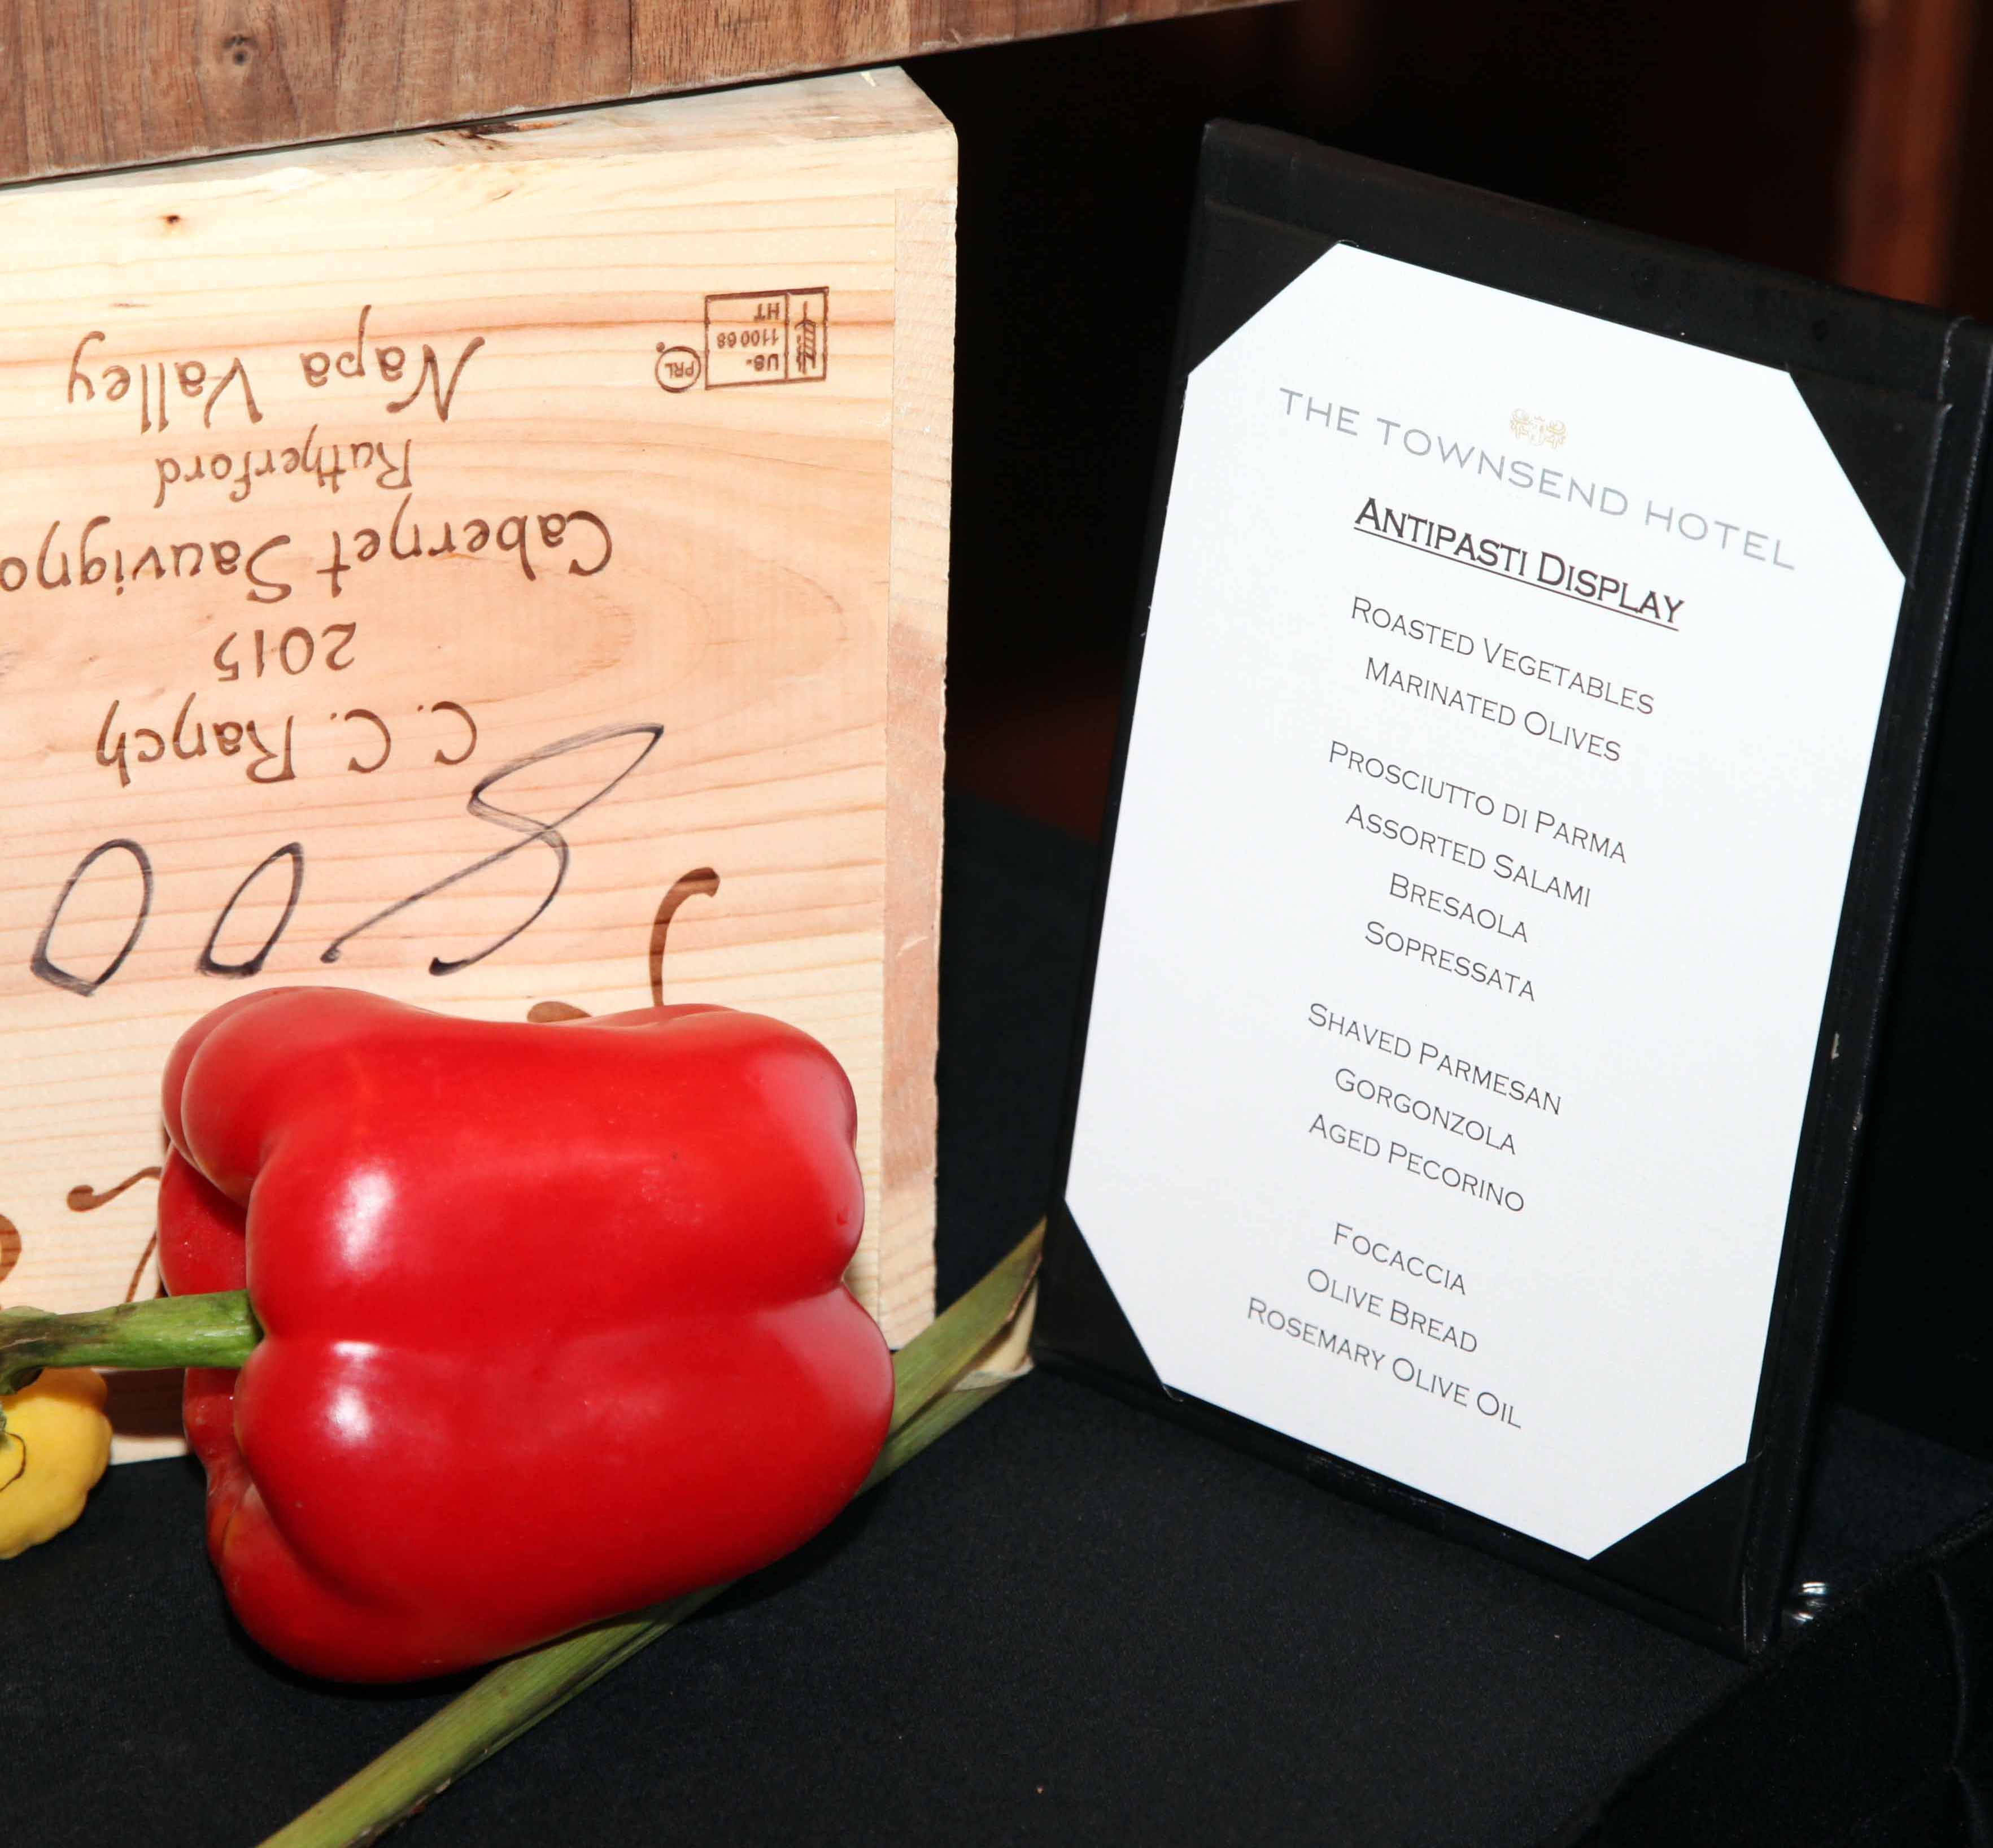 C. C. Ranch
2015
Cabernet Sauvigno
Rutherford
Napa Valley
PRL
US-
110068
HT
THE TOWNSEND HOTEL
ANTIPASTI DISPLAY
ROASTED VEGETABLES
MARINATED OLIVES
PROSCIUTTO DI PARMA
ASSORTED SALAMI
BRESAOLA
SOPRESSATA
SHAVED PARMESAN
GORGONZOLA
AGED PECORINO
FOCACCIA
OLIVE BREAD
ROSEMARY OLIVE OIL